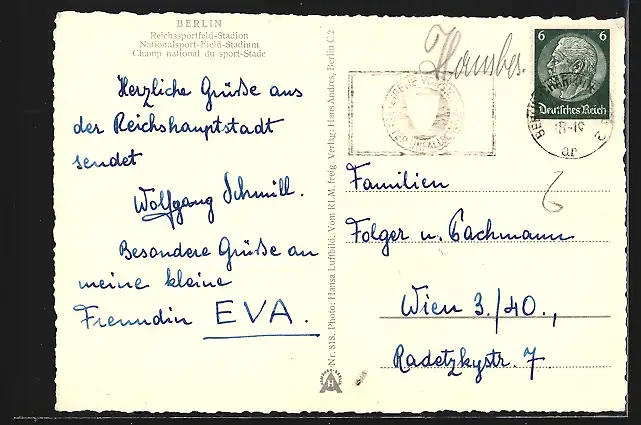 BERLIN
Reichssportfeld-Stadion
Nationalsport-Field-Stadium
Champ national du sport-Stade
Herzliche Grüße aus
der Reichshauptstadt
sendet
Wolfgang Schmill.
Besondere Grüße an
meine kleine
Freundin EVA.
Nr. 818. Photo: Hansa Luftbild: Vom RLM. freig. Verlag: Hans Andres, Berlin C 2
6 6
Deutsches Reich
BERLIN
18-19
Familien
Folger u. Bachmann
Wien 3./40.,
Radetzkystr. 7.
6
H